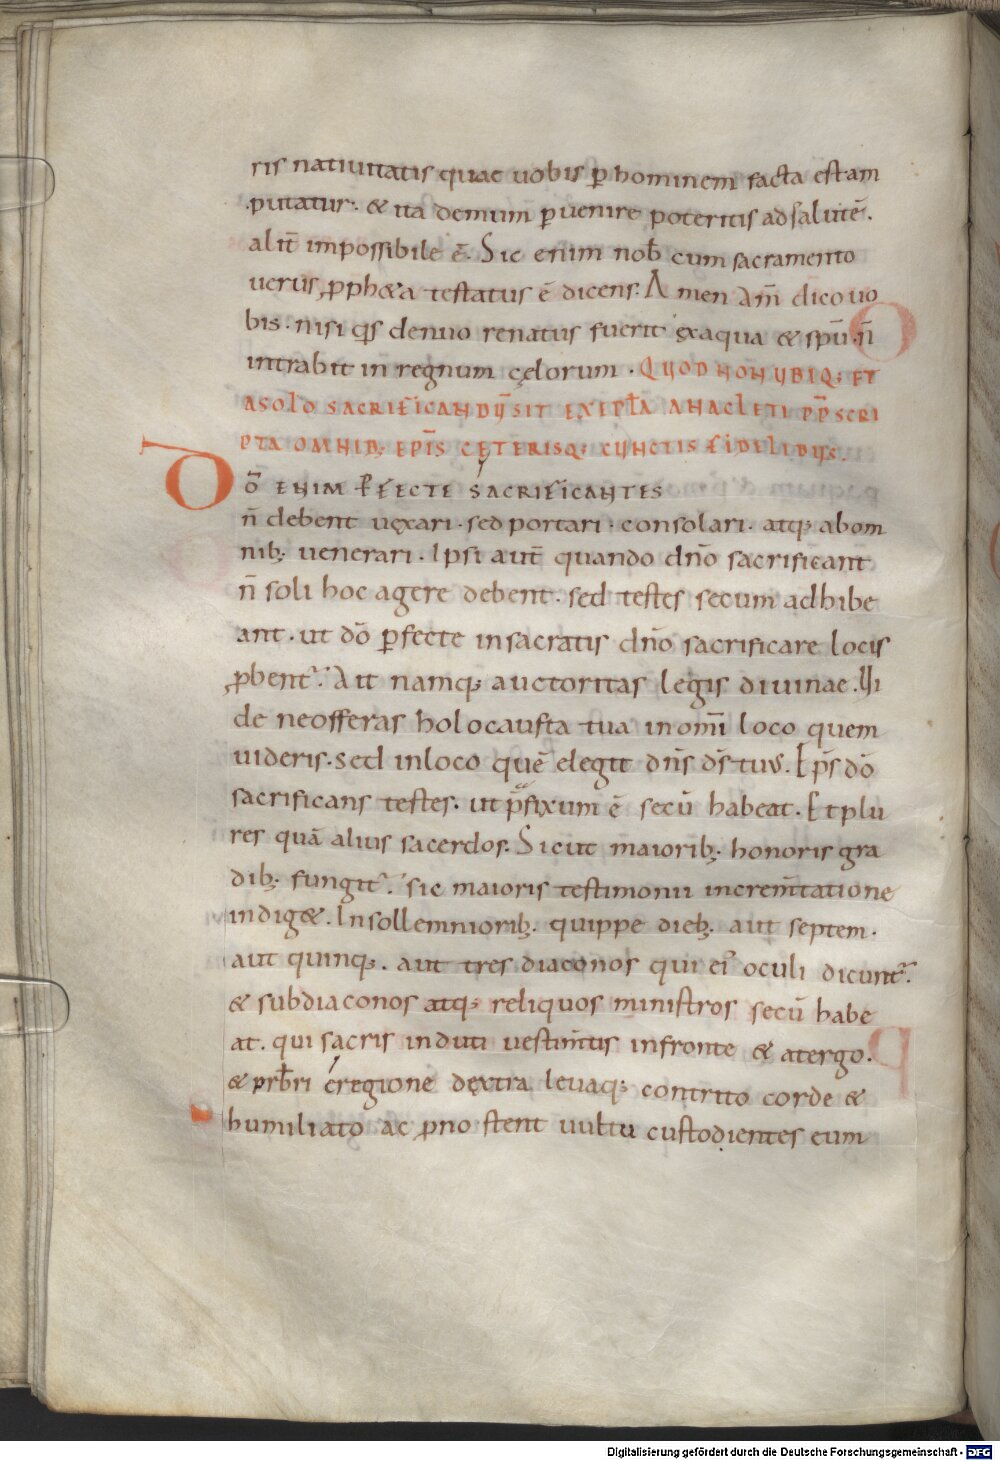 ris natiuitatis quae uobis ꝑ hominem facta est am
putatur. & ita demum ꝑuenire poteritis ad salutē.
alit̄ impossibile ē. Sic enim nob̄ cum sacramento
uerus ꝓph&a testatus ē dicens. Amen am̄ dico uo
bis. nisi q̄s denuo renatus fuerit ex aqua & spū. n̄
intrabit in regnum cęlorum. QUOD NON UBIQ; ET
A SOLO SACRIFICANDŪ SIT EXEPL̄A ANACLETI PP̄ SCRI
PTA OMNIB; EPĪS CĘTERISQ; CUNCTIS FIDELIBUS.
DŌ ENIM PFECTE SACRIFICANTES
n̄ debent uęxari. sed portari. consolari. atq; ab om
nib; uenerari. Ipsi aut̄ quando dn̄o sacrificant
n̄ soli hoc agere debent. sed testes secum adhibe
ant. ut dō ꝑfecte in sacratis dn̄o sacrificare locis
ꝓbent᷑. Ait namq; auctoritas legis diuinae. Ui
de ne offeras holocausta tua in om̄i loco quem
uideris. sed in loco quē elegit dn̄s ds̄ tuus. Ep̄s dō
sacrificans testes. ut p̄fixum ē secū habeat. Et plu
res quā alius sacerdos. Sicut maiorib; honoris gra
dib; fungit᷑. sic maioris testimonii increm̄tatione
indig&. In sollemniorib; quippe dieb; aut septem.
aut quinq;. aut tres diaconos qui ei᷒ oculi dicunt᷑.
& subdiaconos atq; reliquos ministros secū habe
at. qui sacris induti uestim̄tis in fronte & a tergo.
& prb̄ri e regione dextra leuaq; contrito corde &
humiliato ac ꝓno stent uultu custodientes eum
Digitalisierung gefördert durch die Deutsche Forschungsgemeinschaft - DFG